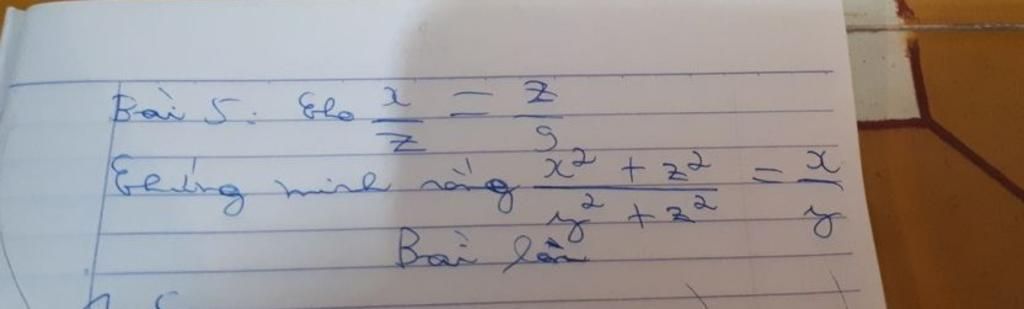 Bài 5: Cho x/z = z/9
Chứng minh rằng x² + z² / y² + z² = x/y
Bài làm